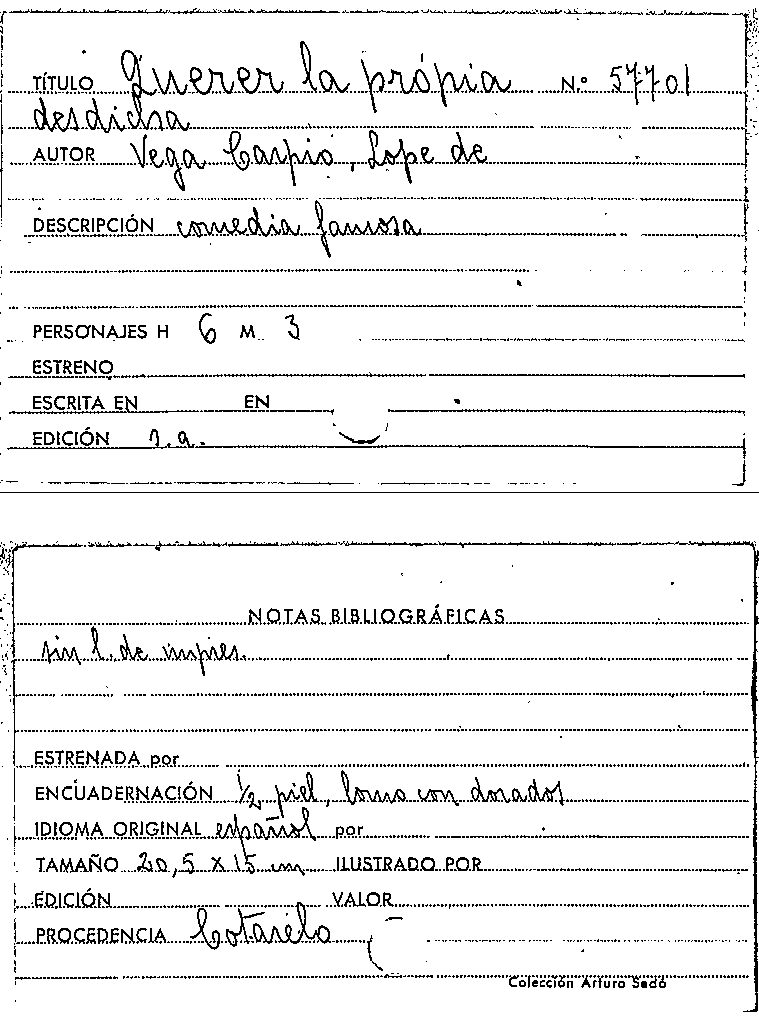 TÍTULO Querer la própia N.º 57701
desdicha
AUTOR Vega Carpio, Lope de
DESCRIPCIÓN comedia famosa
PERSONAJES H 6 M. 3
ESTRENO
ESCRITA EN EN
EDICIÓN s.a.
NOTAS BIBLIOGRÁFICAS
sin l. de impres.
ESTRENADA por
ENCUADERNACIÓN 1/2 piel, lomo con dorados
IDIOMA ORIGINAL español por
TAMAÑO 20,5 x 15 cm ILUSTRADO POR
EDICIÓN VALOR
PROCEDENCIA Cotarelo
Colección Arturo Sedó